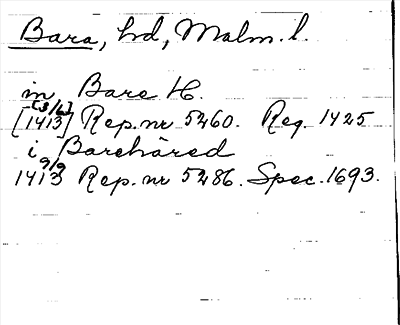 Bara, hd, Malm. l.
in Bare H.
[3/6]
[1413] Rep. nr 5260. Reg. 1425
i Barehäred
9/9
1413 Rep. nr 5286. Spec. 1693.